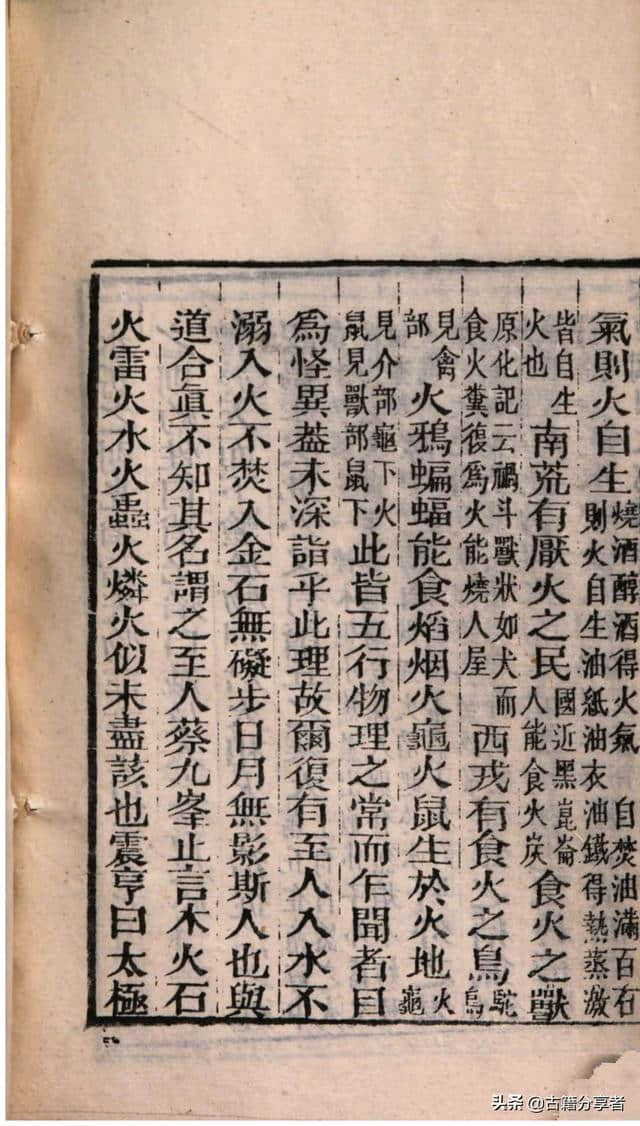 氣則火自生燒酒醇酒得火氣 自焚油滿百石則火自生油紙油衣油鐵得熱蒸激
皆自生火也南荒有厭火之民國近黑崑崙人能食火炭食火之獸
原化記云禍斗獸狀如犬而食火糞復爲火能燒人屋西戎有食火之鳥駝鳥
見禽部火鴉蝙蝠能食焰烟火龜火鼠生於火地火龜
見介部龜下火鼠見獸部鼠下此皆五行物理之常而乍聞者目
爲怪異葢未深詣乎此理故爾復有至人入水不
溺入火不焚入金石無礙步日月無影斯人也與
道合眞不知其名謂之至人蔡九峯止言木火石
火雷火水火蟲火燐火似未盡該也震亨曰太極
头条 @古籍分享者